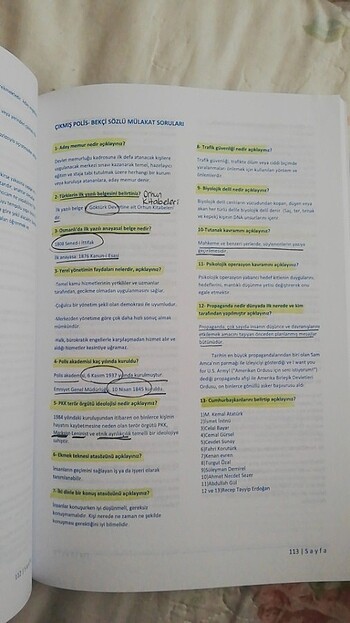 ÇIKMIŞ POLİS- BEKÇİ SÖZLÜ MÜLAKAT SORULARI
1- Aday memur nedir açıklayınız?
Devlet memurluğu kadrosuna ilk defa atanacak kişilere
uygulanacak merkezi sınavı kazanarak temel, hazırlayıcı
eğitim ve staja tabi tutulmak üzere herhangi bir kurum
veya kuruluşa atananlara, aday memur denir.
2- Türklerin ilk yazılı belgesini belirtiniz?
Orhun Kitabeleri
İlk yazılı belge Göktürk Devletine ait Orhun Kitabeleri
dir
3- Osmanlı'da ilk yazılı anayasal belge nedir?
1808 Sened-i İttifak
İlk anayasa: 1876 Kanun-i Esasi
3- Yerel yönetimin faydaları nelerdir, açıklayınız?
-Temel kamu hizmetlerinin yetkililer ve uzmanlar
tarafından, gecikme olmadan uygulanmasını sağlar.
-Çoğulcu bir yönetim şekli olan demokrasi ile uyumludur.
-Merkezden yönetime göre çok daha hızlı sonuç alması
mümkündür.
-Halk, bürokratik engellerle karşılaşmadan hizmet alır ve
aldığı hizmetin kesintiye uğramaz.
4- Polis akademisi kaç yılında kuruldu?
Polis akademisi, 6 Kasım 1937 yılında kurulmuştur.
Emniyet Genel Müdürlüğü, 10 Nisan 1845 kuruldu.
5- PKK terör örgütü ideolojisi nedir açıklayınız?
1984 yılındaki kuruluşundan itibaren on binlerce kişinin
hayatını kaybetmesine neden olan terör örgütü PKK,
Marksist-Leninist ve etnik ayrılıkçılık temelli bir ideolojiye
sahiptir.
6- Ekmek teknesi atasözünü açıklayınız?
İnsanların geçimini sağlayan iş ya da işyeri olarak
tanımlanabilir.
7- İki dinle bir konuş atasözünü açıklayınız?
İnsanlar konuşurken iyi düşünmeli, gereksiz
konuşmamalıdır. Kişi nerede ne zaman ne şekilde
konuşması gerektiğini iyi bilmelidir.
8- Trafik güvenliği nedir açıklayınız?
Trafik güvenliği, trafikte ölüm veya ciddi biçimde
yaralanmaları önlemek için kullanılan yöntem ve
önlemlerdir.
9- Biyolojik delil nedir açıklayınız?
Biyolojik delil canlıların vücudundan kopan, düşen veya
akan her türlü delile biyolojik delil denir. (Saç, ter, tırnak
ve kepek) kişinin DNA unsurlarını içerir.
10-Tutanak kavramını açıklayınız?
Mahkeme ve benzeri yerlerde, söylenenlerin yazıya
geçirilmesidir.
11- Psikolojik operasyon kavramını açıklayınız?
Psikolojik operasyon yabancı hedef kitlenin duygularını,
hedeflerini, mantıklı düşünme yetisi değiştirerek onu
egale etmektir.
12- Propaganda nedir dünyada ilk nerede ve kim
tarafından yapılmıştır açıklayınız?
Propaganda, çok sayıda insanın düşünce ve davranışlarını
etkilemek amacını taşıyan önceden planlanmış mesajlar
bütünüdür.
Tarihin en büyük propagandalarından biri olan Sam
Amca'nın parmağı ile izleyiciyi gösterdiği ve I want you
for U.S. Army! ("Amerikan Ordusu için seni istiyorum!")
dediği propaganda afişi ile Amerika Birleşik Devletleri
Ordusu, on binlerce gönüllü asker başvurusu aldı
13- Cumhurbaşkanlarını belirtip açıklayınız?
1)M. Kemal Atatürk
2)İsmet İnönü
3)Celal Bayar
4)Cemal Gürsel
5)Cevdet Sunay
6)Fahri Korutürk
7)Kenan evren
8)Turgut Özal
9)Süleyman Demirel
10)Ahmet Necdet Sezer
11)Abdullah Gül
12 ve 13)Recep Tayyip Erdoğan
113 | Sayfa